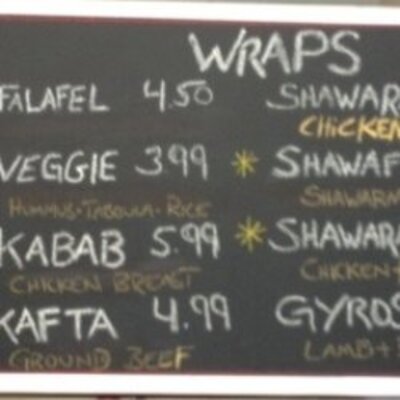 WRAPS
FALAFEL 4.50
VEGGIE 3.99
HUMMUS • TABOULA • RICE
KABAB 5.99
CHICKEN BREAST
KAFTA 4.99
GROUND BEEF
SHAWAR
CHICKEN
* SHAWAF
SHAWARM
* SHAWARA
CHICKEN +
GYROS
LAMB +